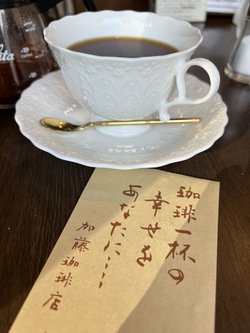 珈琲一杯の
幸せを
あなたに・・・
加藤珈琲店